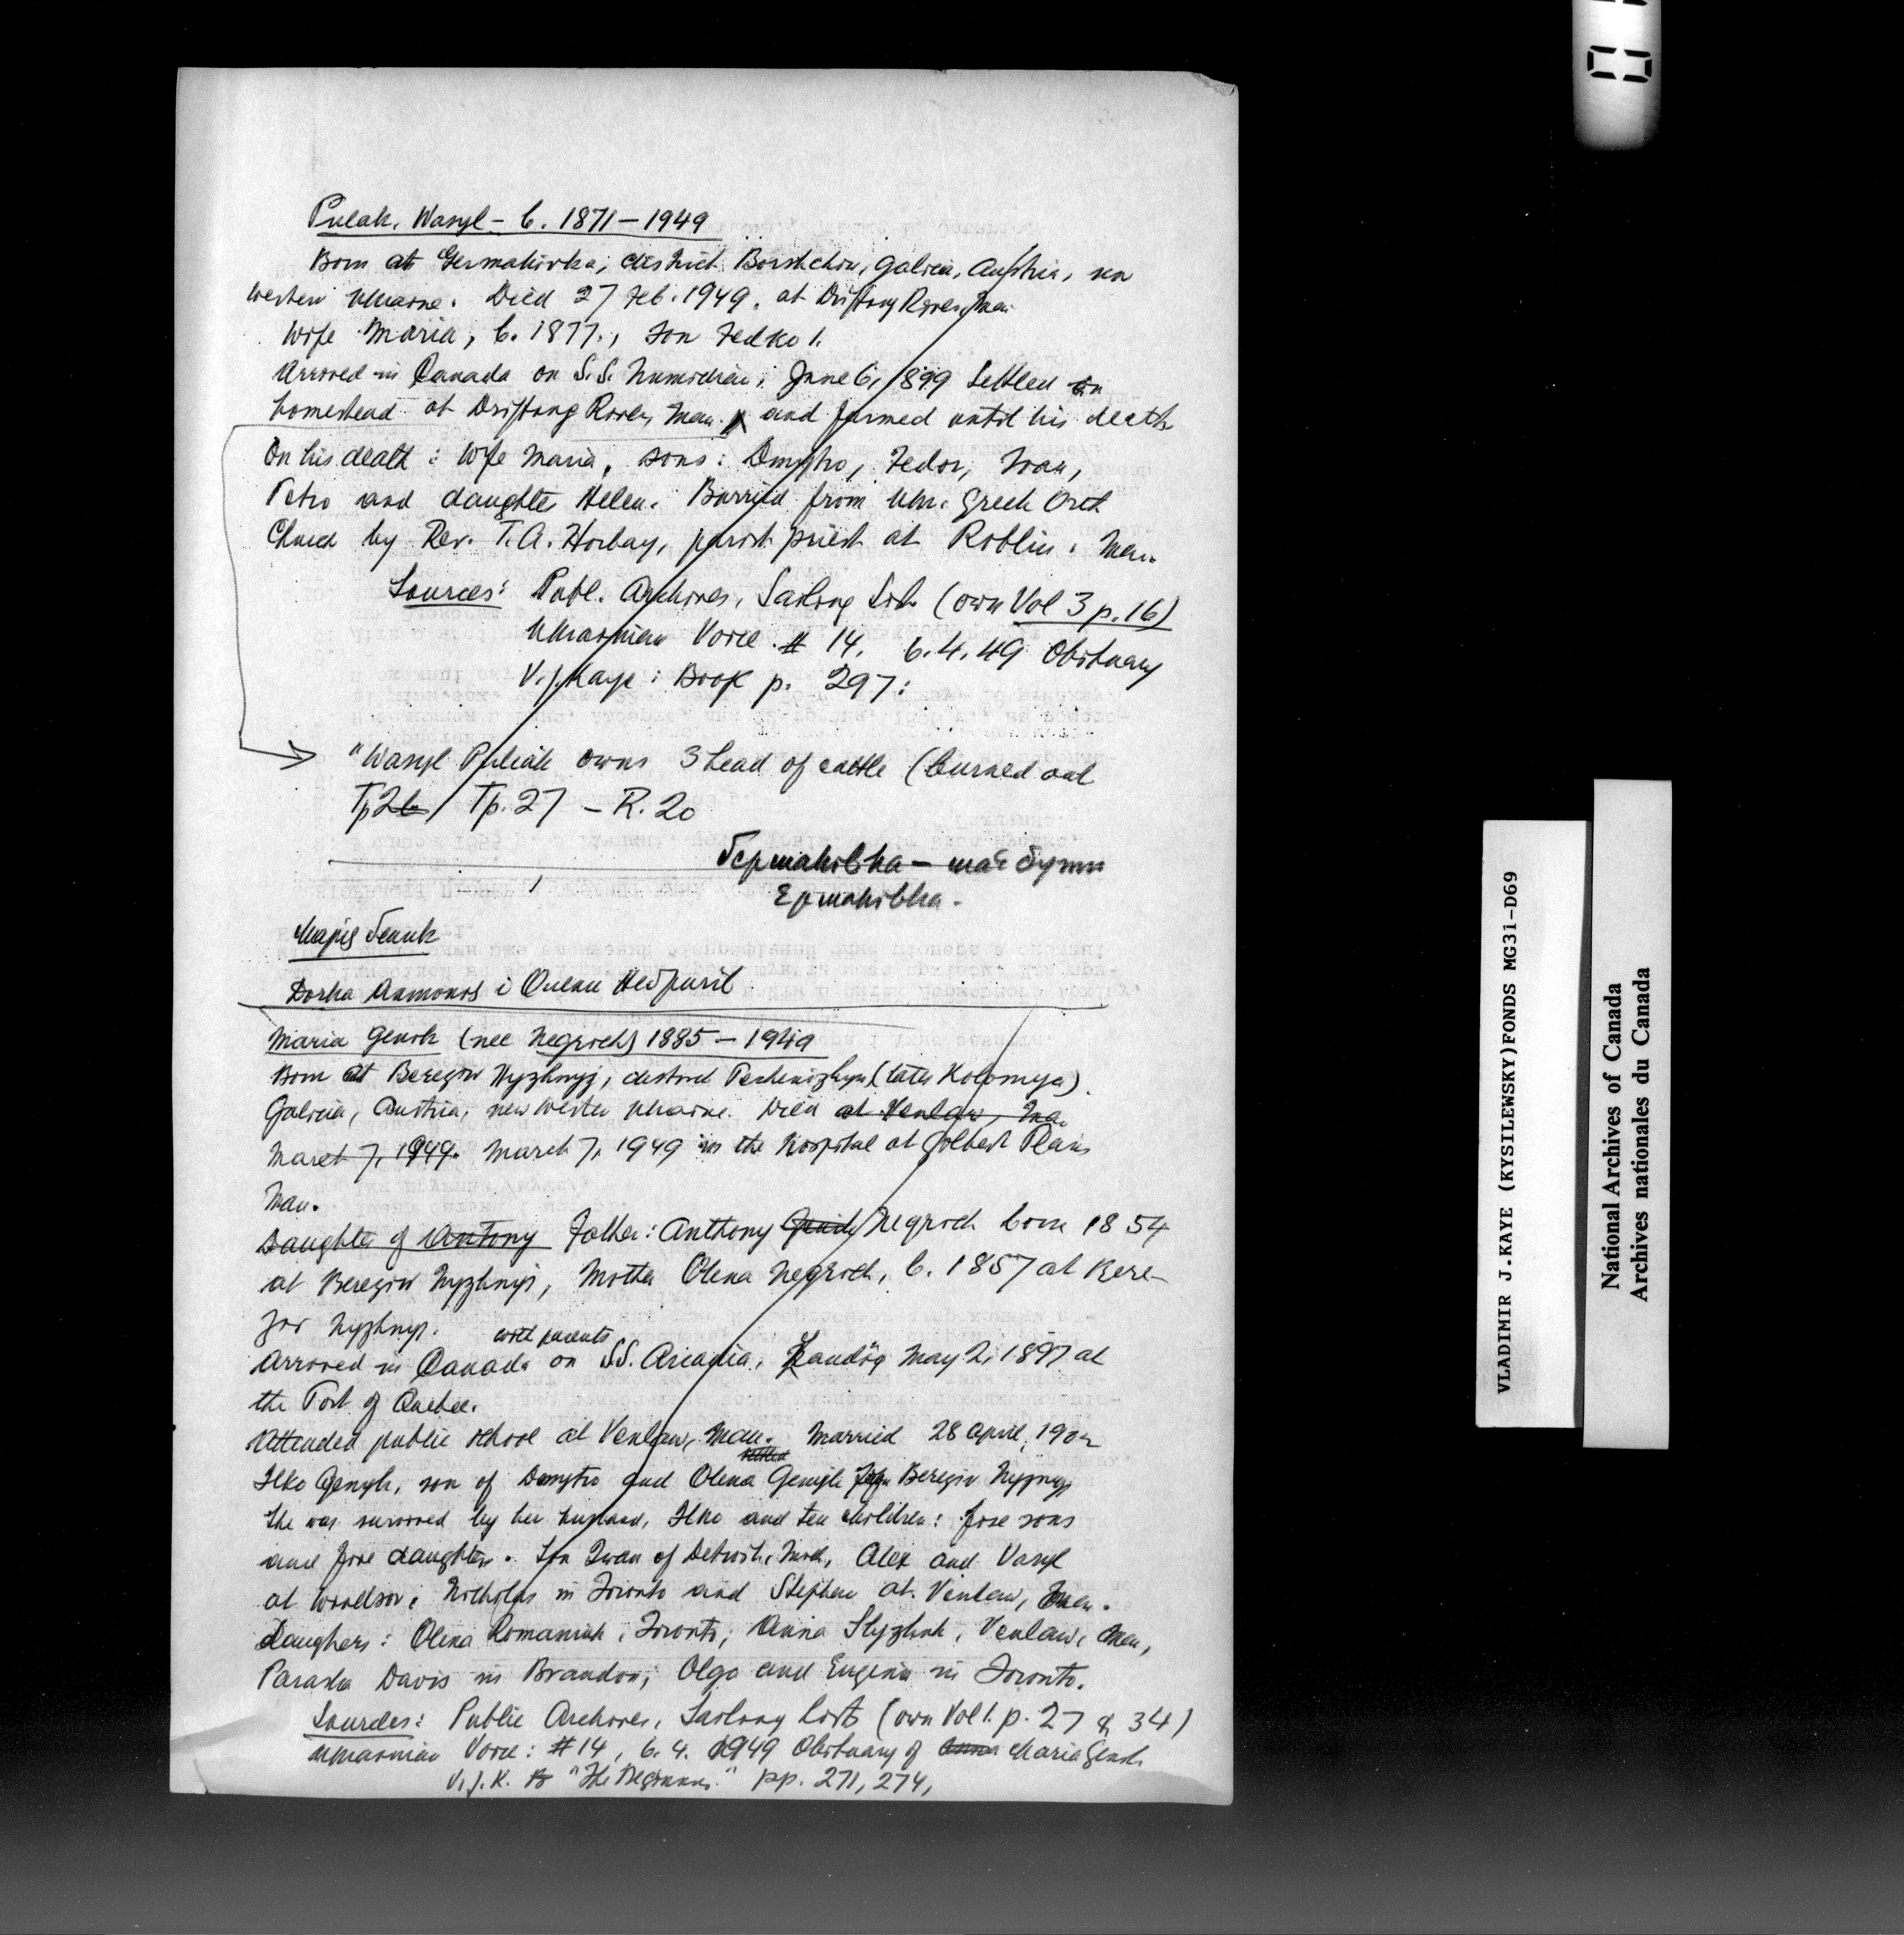 Puleak, Wasyl – b. 1871 – 1949
Born at Germakivka, district Borshchiw, Galicia, Austria, now
Western Ukraine. Died 27 Feb. 1949. at Drifting River, Man.
Wife Maria, b. 1877., son Fedko 1.
Arrived in Canada on S.S. Numidian, June 6, 1899 Settled on
homestead at Drifting River, Man. and farmed until his death
On his death: Wife Maria, sons: Dmytro, Fedor, Ivan,
Petro and daughter Helen. Burried from Ukr. Greek Orth
Church by Rev. T.A. Horbay, parish priest at Roblin, Man.
Sources: Publ. Archives, Sailing List (own Vol 3 p. 16)
Ukrainian Voice # 14, 6.4.49 Obituary
V.J. Kaye: Book p. 297:
"Wasyl Puliak owns 3 head of cattle (burned out
Tp 26 Tp. 27 – R. 20
Германівка – має бути
Єрмаківка.
Марія Геник
Дочка Антонія і Олени Неґрич
Maria Genik (nee Negrich) 1885 – 1949
Born at Bereziw Nyzhnyj, district Pechenizhyn (later Kolomyja)
Galicia, Austria, now Western Ukraine. Died at Venlaw, Man.
March 7, 1949. March 7, 1949 in the hospital at Gilbert Plains
Man.
Daughter of Antony Father: Anthony Genik Negrich born 1854
at Bereziw Nyzhnyj, Mother Olena Negrich, b. 1857 at Bere-
ziw Nyzhnyj.
with parents
Arrived in Canada on S.S. Arcadia, Landing May 2, 1897 at
the Port of Quebec.
Attended public school at Venlaw, Man. Married 28 April, 1902
Ilko Genyk, son of Dmytro and Olena Genyk from Bereziw Nyzhnyj
She was survived by her husband, Ilko and ten children: five sons
and five daughters. Son Ivan of Detroit, Mich, Alex and Vasyl
at Windsor, Nicholas in Toronto and Stephen at Venlaw, Man.
Daughers: Olena Romaniuk, Toronto; Anna Slyzhuk, Venlaw, Man,
Paraska Davis in Brandon; Olga and Eugenia in Toronto.
Sources: Public Archives, Sailing List (own Vol 1. p. 27 & 34)
Ukrainian Voice: #14, 6.4. 1949 Obituary of Anna Maria Genik
V.J.K. B "The Beginnings" pp. 271, 274,
VLADIMIR J.KAYE (KYSILEWSKY)FONDS MG31-D69
National Archives of Canada
Archives nationales du Canada